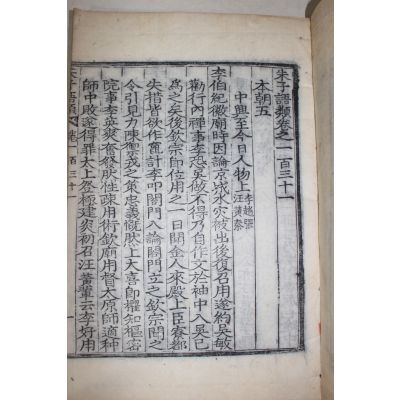 朱子語類卷之一百三十一
本朝五
中興至今日人物上 李趙張 汪黃秦
李伯紀徽廟時因論京城水災被出後復召用遂約吳敏
勸行內禪事李恐吳做不得乃自作文於袖中入吳已
為之矣後欽宗即位用之一日聞金人來殿上臣寮都
失措皆欲作竄計李叩閤門入論閤門立之欽宗聞之
令引見力陳禦戎之策忠義慨然上大喜即擢知樞密
院事李英爽奮發然性疎用術欽廟用督太原師適种
師中敗遂得罪太上登極建炎初召汪黃輩云李好用